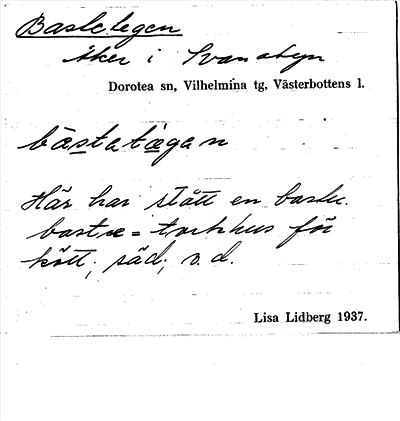 Bastetegen
åker i Svanabyn
Dorotea sn, Vilhelmina tg, Västerbottens l.
bästatägan
Här har stått en bastu.
bastu = torkhus för
kött, säd, o. d.
Lisa Lidberg 1937.